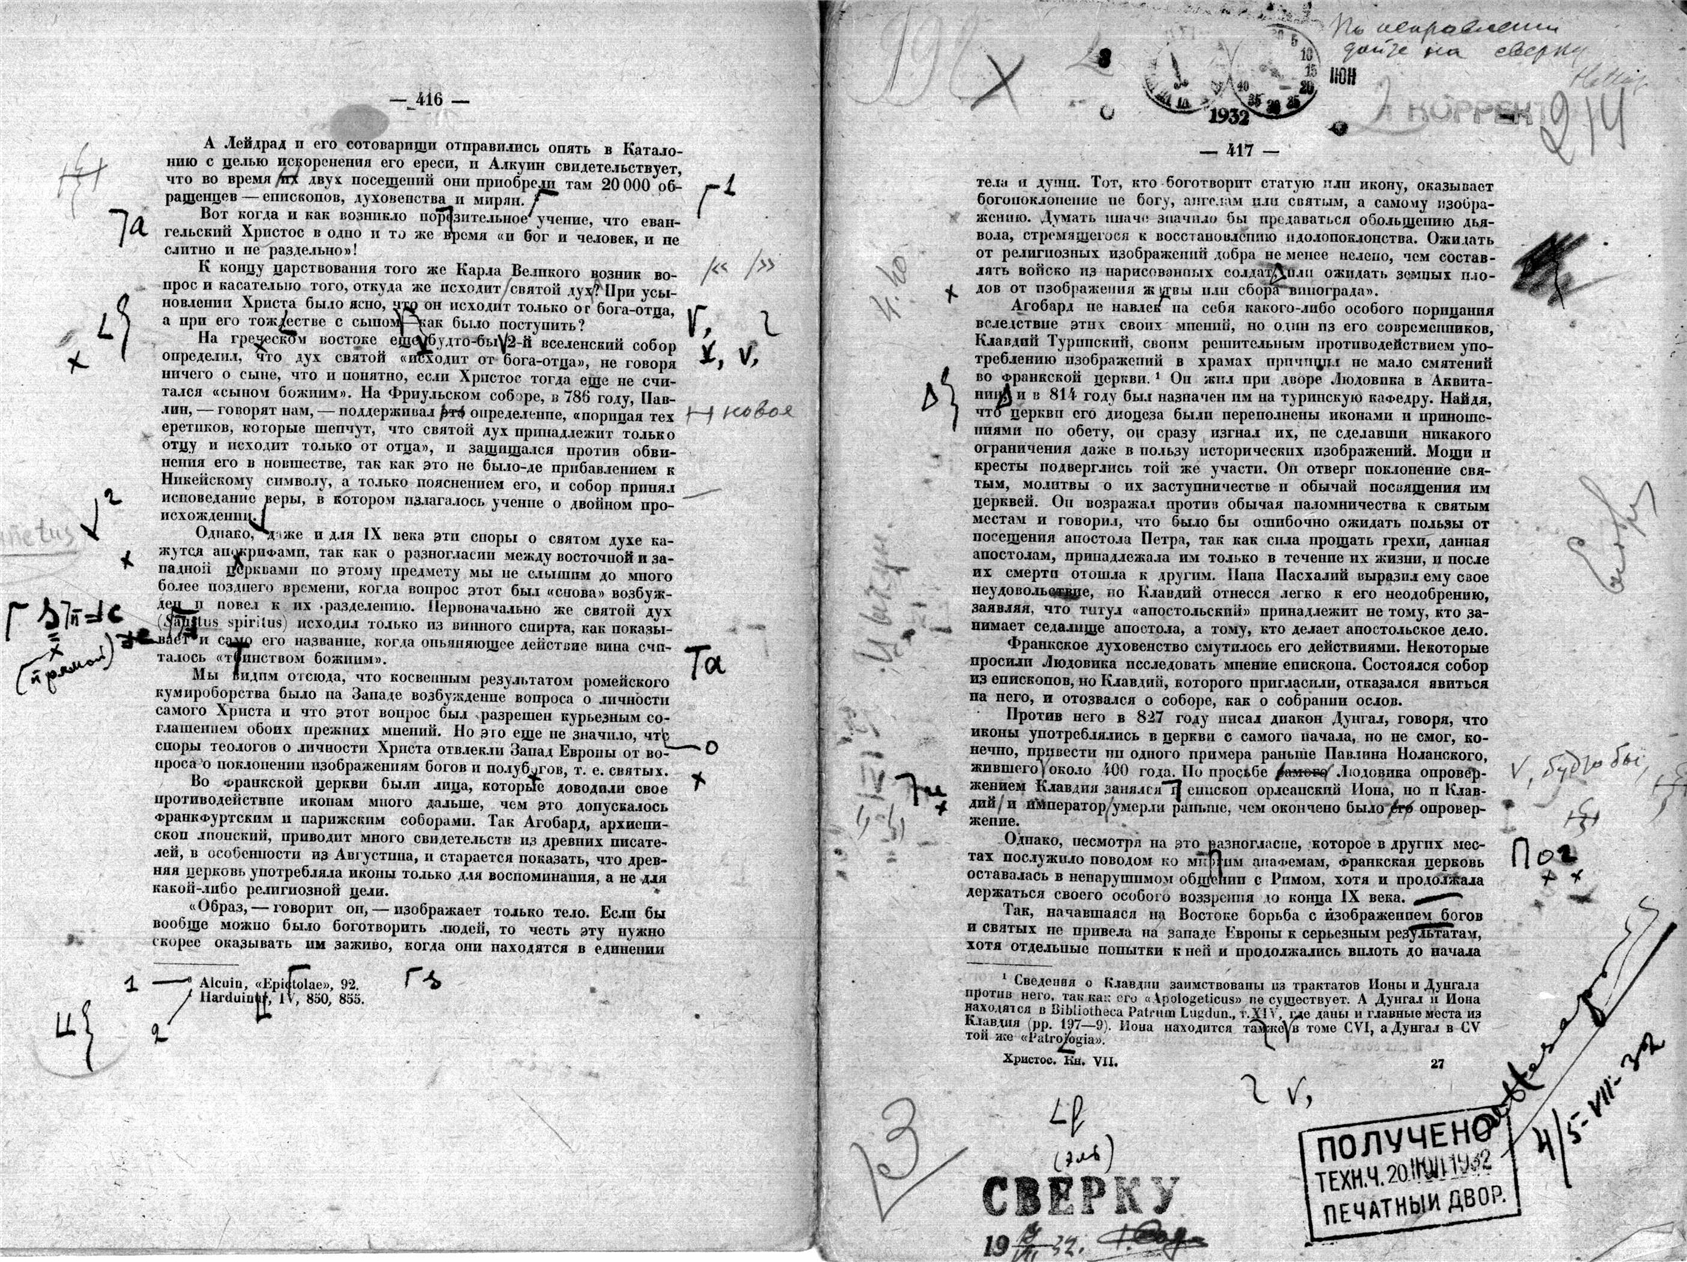 — 416 —
А Лейдрад и его сотоварищи отправились опять в Катало-
нию с целью искоренения его ереси, и Алкуин свидетельствует,
что во время их двух посещений они приобрели там 20 000 об-
ращенцев — епископов, духовенства и мирян.
Вот когда и как возникло поразительное учение, что еван-
гельский Христос в одно и то же время «и бог и человек, и не
слитно и не раздельно»!
К концу царствования того же Карла Великого возник во-
прос и касательно того, откуда же исходит святой дух? При усы-
новлении Христа было ясно, что он исходит только от бога-отца,
а при его тождестве с сыном как было поступить?
На греческом востоке еще будто-бы 2-й вселенский собор
определил, что дух святой «исходит от бога-отца», не говоря
ничего о сыне, что и понятно, если Христос тогда еще не счи-
тался «сыном божиим». На Фриульском соборе, в 786 году, Пав-
лин, — говорят нам, — поддерживал это определение, «порицая тех
еретиков, которые шепчут, что святой дух принадлежит только
отцу и исходит только от отца», и защищался против обви-
нения его в новшестве, так как это не было-де прибавлением к
Никейскому символу, а только пояснением его, и собор принял
исповедание веры, в котором излагалось учение о двойном про-
исхождении.
Однако, даже и для IX века эти споры о святом духе ка-
жутся апокрифами, так как о разногласии между восточной и за-
падной церквами по этому предмету мы не слышим до много
более позднего времени, когда вопрос этот был «снова» возбуж-
ден и повел к их разделению. Первоначально же святой дух
(Sanctus spiritus) исходил только из винного спирта, как показы-
вает и само его название, когда опьяняющее действие вина счи-
талось «таинством божиим».
Мы видим отсюда, что косвенным результатом ромейского
кумироборства было на Западе возбуждение вопроса о личности
самого Христа и что этот вопрос был разрешен курьезным со-
глашением обоих прежних мнений. Но это еще не значило, что
споры теологов о личности Христа отвлекли Запад Европы от во-
проса о поклонении изображениям богов и полубогов, т. е. святых.
Во франкской церкви были лица, которые доводили свое
противодействие иконам много дальше, чем это допускалось
франкфуртским и парижским соборами. Так Агобард, архиепи-
скоп лионский, приводит много свидетельств из древних писате-
лей, в особенности из Августина, и старается показать, что древ-
няя церковь употребляла иконы только для воспоминания, а не для
какой-либо религиозной цели.
«Образ, — говорит он, — изображает только тело. Если бы
вообще можно было боготворить людей, то честь эту нужно
скорее оказывать им заживо, когда они находятся в единении
Alcuin, «Epictolae», 92.
IV, 850, 855.
Та
новое
(прямой)
Та
1
2
1932
ПОН
КОРРЕКТ
— 417 —
тела и души. Тот, кто боготворит статую или икону, оказывает
богопоклонение не богу, ангелам или святым, а самому изобра-
жению. Думать иначе значило бы предаваться обольщению дья-
вола, стремящегося к восстановлению идолопоклонства. Ожидать
от религиозных изображений добра не менее нелепо, чем состав-
лять войско из нарисованных солдат, или ожидать земных пло-
дов от изображения жатвы или сбора винограда».
Агобард не навлек на себя какого-либо особого порицания
вследствие этих своих мнений, но один из его современников,
Клавдий Туринский, своим решительным противодействием упо-
треблению изображений в храмах причинил не мало смятений
во франкской церкви. ¹ Он жил при дворе Людовика в Аквита-
нии и в 814 году был назначен им на туринскую кафедру. Найдя,
что церкви его диоцеза были переполнены иконами и приноше-
ниями по обету, он сразу изгнал их, не сделавши никакого
ограничения даже в пользу исторических изображений. Мощи и
кресты подверглись той же участи. Он отверг поклонение свя-
тым, молитвы о их заступничестве и обычай посвящения им
церквей. Он возражал против обычая паломничества к святым
местам и говорил, что было бы ошибочно ожидать пользы от
посещения апостола Петра, так как сила прощать грехи, данная
апостолам, принадлежала им только в течение их жизни, и после
их смерти отошла к другим. Папа Пасхалий выразил ему свое
неудовольствие, но Клавдий отнесся легко к его неодобрению,
заявляя, что титул «апостольский» принадлежит не тому, кто за-
нимает седалище апостола, а тому, кто делает апостольское дело.
Франкское духовенство смутилось его действиями. Некоторые
просили Людовика исследовать мнение епископа. Состоялся собор
из епископов, но Клавдий, которого пригласили, отказался явиться
на него, и отозвался о соборе, как о собрании ослов.
Против него в 827 году писал диакон Дунгал, говоря, что
иконы употреблялись в церкви с самого начала, но не смог, ко-
нечно, привести ни одного примера раньше Павлина Ноланского,
жившего около 400 года. По просьбе самого Людовика опровер-
жением Клавдия занялся епископ орлеанский Иона, но и Клав-
дий и император умерли раньше, чем окончено было это опровер-
жение.
Однако, несмотря на это разногласие, которое в других мес-
тах послужило поводом ко многим анафемам, франкская церковь
оставалась в ненарушимом общении с Римом, хотя и продолжала
держаться своего особого воззрения до конца IX века.
Так, начавшаяся на Востоке борьба с изображением богов
и святых не привела на западе Европы к серьезным результатам,
хотя отдельные попытки к ней и продолжались вплоть до начала
¹ Сведения о Клавдии заимствованы из трактатов Ионы и Дунгала
против него, так как его «Apologeticus» не существует. А Дунгал и Иона
находятся в Bibliotheca Patrum Lugdun., т. XIV, где даны и главные места из
Клавдия (pp. 197—9). Иона находится также в томе CVI, а Дунгал в CV
той же «Patrologia».
Христос. Кн. VII.
27
(эль)
СВЕРКУ
ПОЛУЧЕНО
ТЕХН.Ч. 20 ИЮЛ 1932
ПЕЧАТНЫЙ ДВОР.
4/5-VII-32